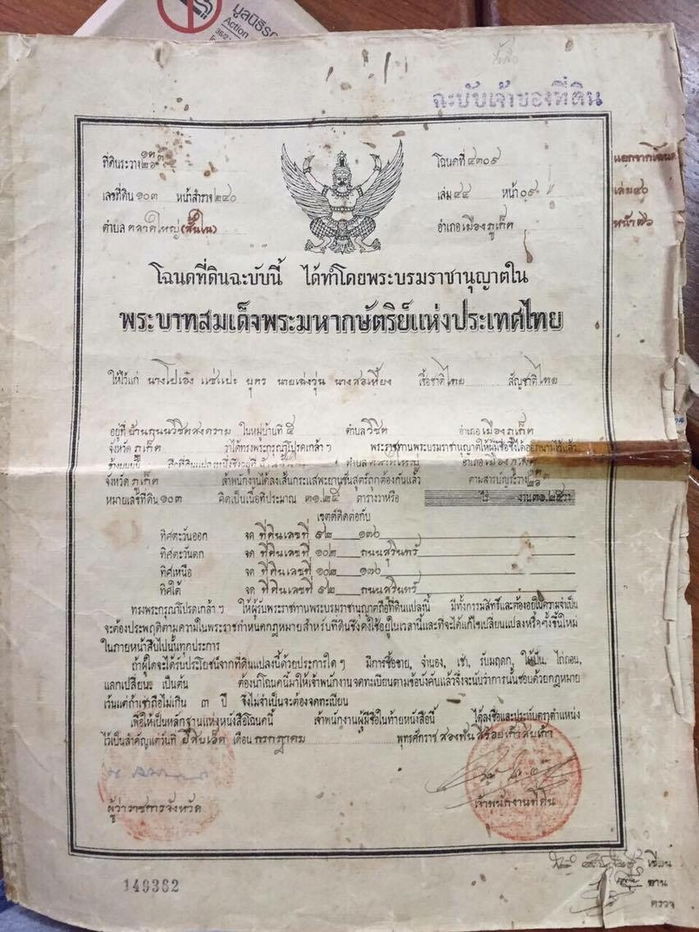 มูลนิธิรณ
Action
ฉะบับเจ้าของที่ดิน
ที่ดินระวาง
โฉนดที่ ๔๓๐๙
แยกจากโฉนด
เลขที่ดิน ๑๐๓ หน้าสำรวจ ๒๔๐
เล่ม ๔๔ หน้า ๐๙
เล่ม ๔๐
ตำบล ตลาดใหญ่
อำเภอ เมืองภูเก็ต
หน้า ๗๖
โฉนดที่ดินฉะบับนี้ ได้ทำโดยพระบรมราชานุญาตใน
พระบาทสมเด็จพระมหากษัตริย์แห่งประเทศไทย
ให้ไว้แก่ นาง แซ่ บุตร นาย นาง เชื้อชาติ ไทย สัญชาติ ไทย
อยู่ที่ บ้านถนนวิชิตสงคราม ในหมู่บ้านที่ ๕ ตำบล วิชิต อำเภอ เมืองภูเก็ต
จังหวัด ภูเก็ต ว่าได้ทรงพระกรุณาโปรดเกล้า ฯ พระราชทานพระบรมราชานุญาตให้มีชื่อซึ่งได้ออกนามไว้แล้ว
จังหวัด ภูเก็ต เจ้าพนักงานได้ลงเส้นกระแสพะยานชันสูตรถูกต้องกันแล้ว ตามสารบัญระวาง
หมายเลขที่ดิน ๑๐๓ คิดเป็นเนื้อที่ประมาณ ๓๑.๒๕ ตารางวาหรือ ไร่ งาน ๓๑.๒๕ วา
เขตต์ติดต่อกับ
ทิศตะวันออก จด ที่ดินเลขที่ ๕๒ ๑๗๖
ทิศตะวันตก จด ที่ดินเลขที่ ๑๐๒ ถนนสุรินทร์
ทิศเหนือ จด ที่ดินเลขที่ ๑๐๒ ๑๗๖
ทิศใต้ จด ที่ดินเลขที่ ๕๒ ถนนสุรินทร์
ทรงพระกรุณาโปรดเกล้า ฯ ให้ผู้รับพระราชทานพระบรมราชานุญาตถือที่ดินแปลงนี้ มีทั้งกรรมสิทธิ์และต้องอยู่ในความจำเป็น
จะต้องประพฤติตามความในพระราชกำหนดกฎหมายสำหรับที่ดินซึ่งตั้งใช้อยู่ในเวลานี้และที่จะได้แก้ไขเปลี่ยนแปลงหรือตั้งขึ้นใหม่
ในภายหน้าสืบไปนั้นทุกประการ
ถ้าผู้ใดจะได้รับประโยชน์จากที่ดินแปลงนี้ด้วยประการใด ๆ มีการซื้อขาย, จำนอง, เช่า, รับมฤดก, ให้ปัน, ไถ่ถอน,
แลกเปลี่ยน เป็นต้น ต้องนำโฉนดนี้มาให้เจ้าพนักงานจดทะเบียนตามข้อบังคับแล้วจึ่งจะนับว่าการนั้นชอบด้วยกฎหมาย
เว้นแต่ถ้าเช่าถือไม่เกิน ๓ ปี จึ่งไม่จำเป็นจะต้องจดทะเบียน
เพื่อให้เป็นหลักฐานแห่งหนังสือโฉนดนี้ เจ้าพนักงานผู้มีชื่อในท้ายหนังสือนี้ ได้ลงชื่อและประทับตราตำแหน่ง
ไว้เป็นสำคัญแต่วันที่ ยี่สิบเอ็ด เดือน กรกฎาคม พุทธศักราช สองพันสี่ร้อยเก้าสิบเก้า
ผู้ว่าราชการจังหวัด
เจ้าพนักงานที่ดิน
149362
เขียน
ทาน
ตรวจ